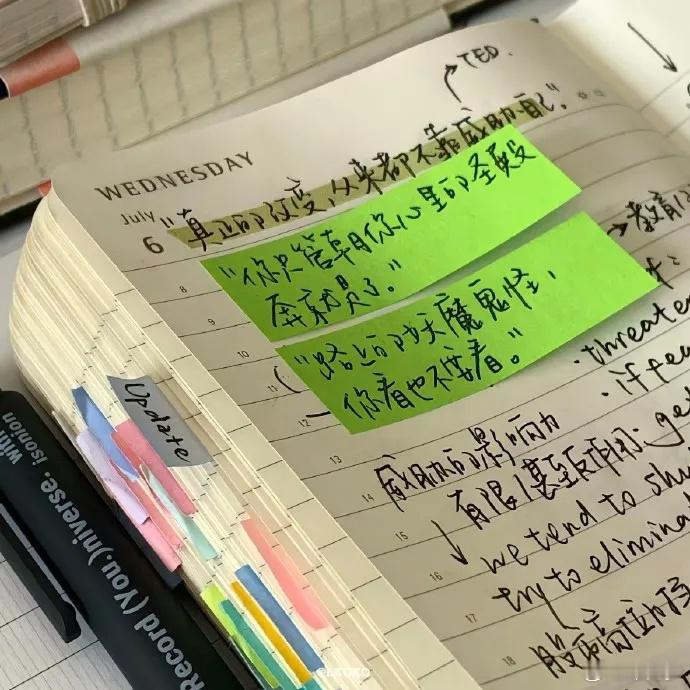 TED.
WEDNESDAY
July
6
"真正的改变,从来都不靠威胁自己。"
"你只管朝你心里的圣殿
奔就是了。"
"路上的妖魔鬼怪,
你看也不要看。"
→教育
8
9
10
11
12
13
14
15
16
17
18
· threate
· if fea
威胁的影响力
有限/甚至
we tend to shu
try to elimina
Update
Record (You)niverse. isonion
with